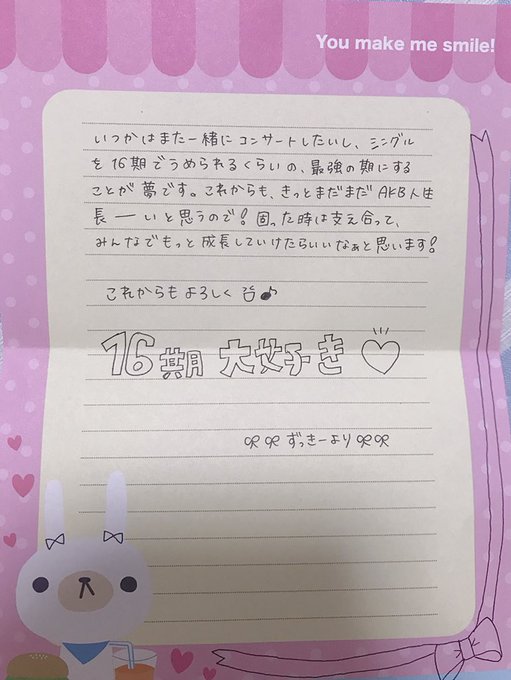 You make me smile!
いつかはまた一緒にコンサートしたいし、シングル
を16期でうめられるくらいの、最強の期にする
ことが夢です。これからも、きっとまだまだAKB人生
長ーいと思うので!困った時は支え合って、
みんなでもっと成長していけたらいいなぁと思います!
これからもよろしく
16期 大好き♡
ずっきーより